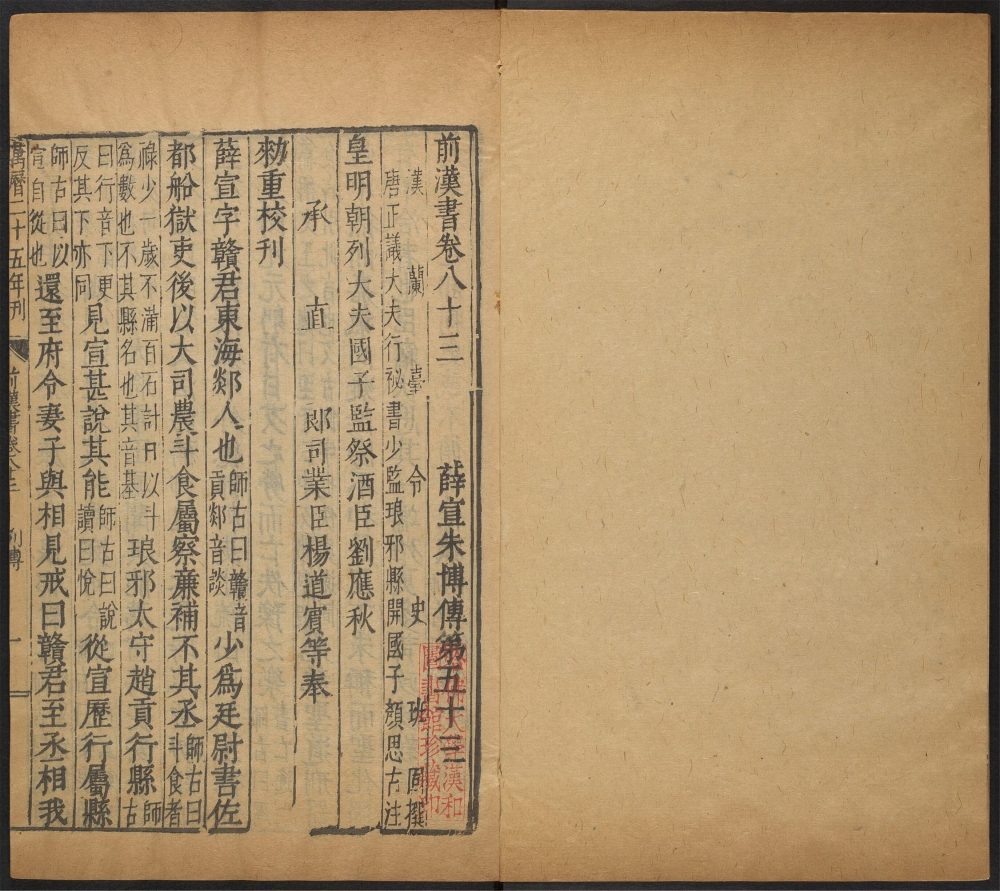 前漢書卷八十三　薛宣朱博傳第五十三
漢蘭臺令史班固撰
唐正議大夫行祕書少監琅邪縣開國子顏思古注
皇明朝列大夫國子監祭酒臣劉應秋
承直郎司業臣楊道賓等奉
勑重校刊
薛宣字贛君東海郯人也師古曰贛音貢郯音談少爲廷尉書佐
都船獄吏後以大司農斗食屬察廉補不其丞師古曰斗食者
祿少一歲不滿百石計日以斗爲數也不其縣名也其音基琅邪太守趙貢行縣師古
曰行音下更反其下亦同見宣甚說其能師古曰說讀曰悅從宣歷行屬縣
師古曰以宣自從也還至府令妻子與相見戒曰贛君至丞相我
萬曆二十五年刊
前漢書卷八三　列傳　一
漢和
圖書館珍藏印